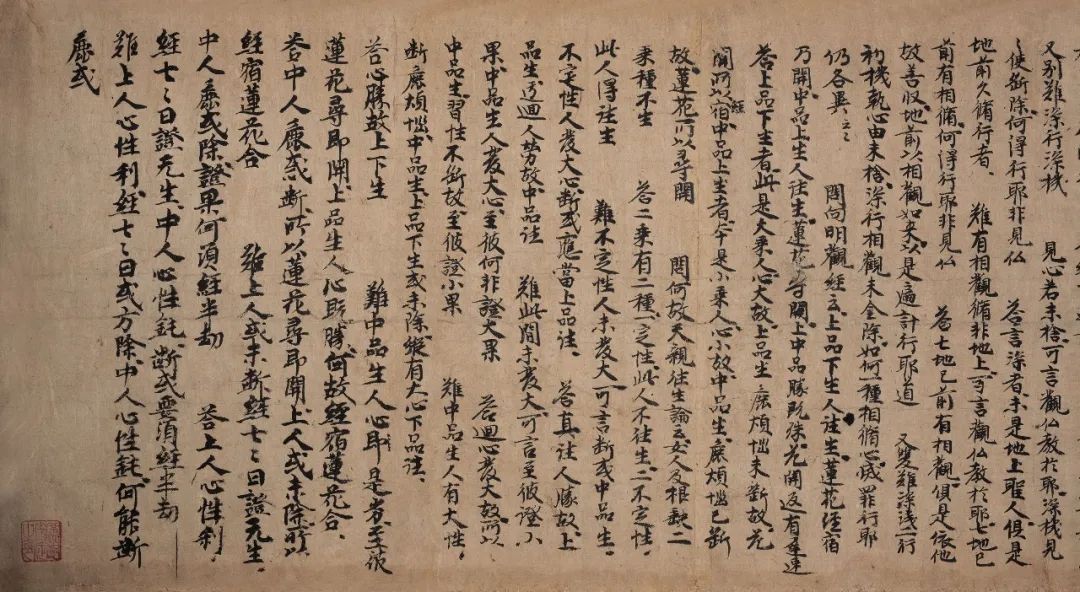 又別難深行深機　　　　見心若未捨可言觀仏教於耶深機見
〻使断除何得行耶非見仏　　　荅言深者未是地上聖人但是
地前久脩行者　　難有相觀脩非地上可言觀仏教於耶七地已
前有相脩何得行耶非見仏　　荅七地已前有相觀俱是依他
故善收地前以相觀如来只是遍計行耶道　　又雙難深淺二行
初機執心由未捨深行相觀未全除如何一種相脩心滅罪行耶
仍各異〻　　問向明觀經云上品下生人往生蓮花經宿
乃開中品上生人往生蓮花 開上中品勝既殊花開返有 速
荅上品下生者此是大乘人心大故上品生麁煩惱未斷故花
開所以經宿中品上生者 是小乘人心小故中品生麁煩惱已斷
故蓮花可以尋開　　問何故天親往生論云女人及根缺二
乘種不生　　荅二乘有二種一定性此人不往生二不定性
此人得往生　　難不定性人未發大可言斷或中品生
不定性人發大心断或應當上品往　　荅其往人勝故上
品生 迴人劣故中品往　　難此間未發大可言至彼證小
果中品生人發大心至彼何非證大果　　荅迴心發大故所以
中品生習性不斷故至彼證小果　　難中品生人有大性
斷麁煩惱中品生上品下生或未除纔有大心下品往
荅心勝故上下生　　難中品生人心耶是劣至彼
蓮花尋即開上品生人心既勝何故經宿蓮花合
荅中人麁或断所以蓮花尋即開上人或未除所以
經宿蓮花合　　難上人或未断經七〻日證无生
中人麁或除證果何須經半劫　　荅上人心性利
經七〻日證无生中人心性鈍断或要須經半劫
難上人心性利經七〻日或方除中人心性鈍何能断
麁或